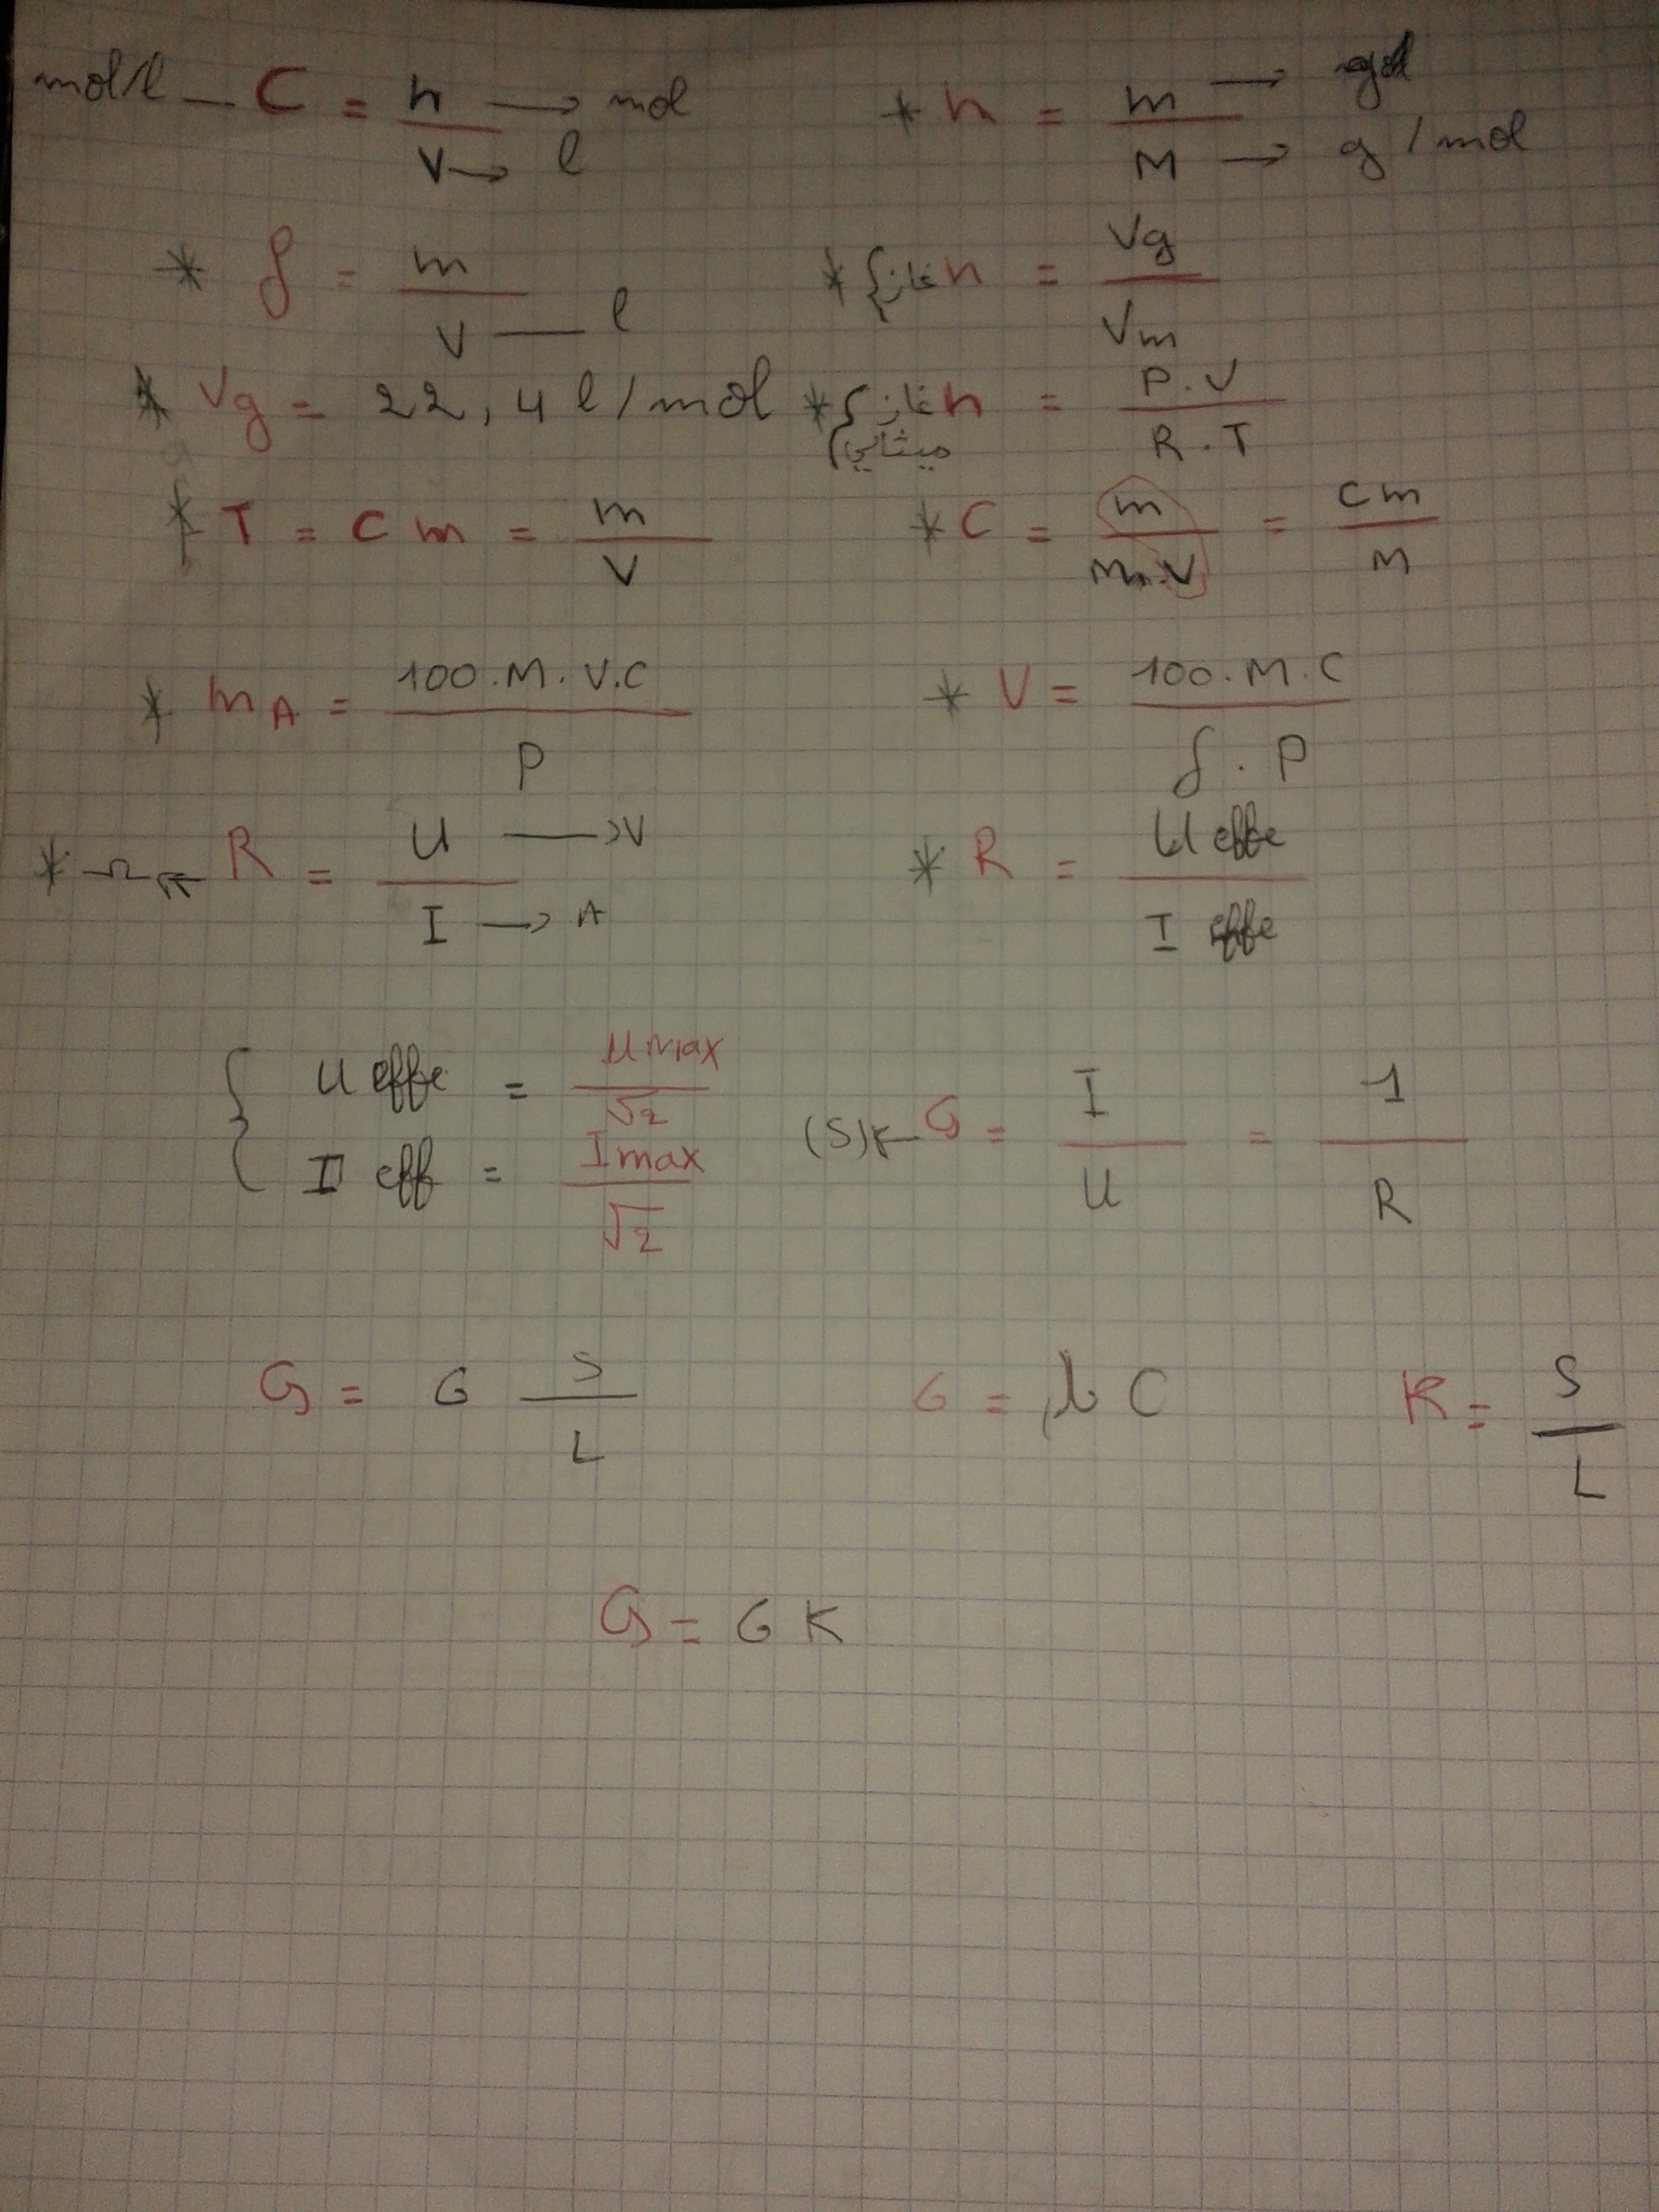 mol/l — C = n/V → mol → l * n = m/M → g → g/mol
* ρ = m/V — l * غاز} n = Vg/Vm
* Vg = 22,4 l/mol * غاز ميثالي} n = P.V/R.T
* T = Cm = m/V * C = m/M.V = Cm/M
* mA = 100.M.V.C/P * V = 100.M.C/ρ.P
* Ω ← R = U/I → V → A * R = U effe/I effe
{ U effe = Umax/√2
I eff = Imax/√2 (S) ← G = I/U = 1/R
G = σ S/L σ = λ C K = S/L
G = σ K